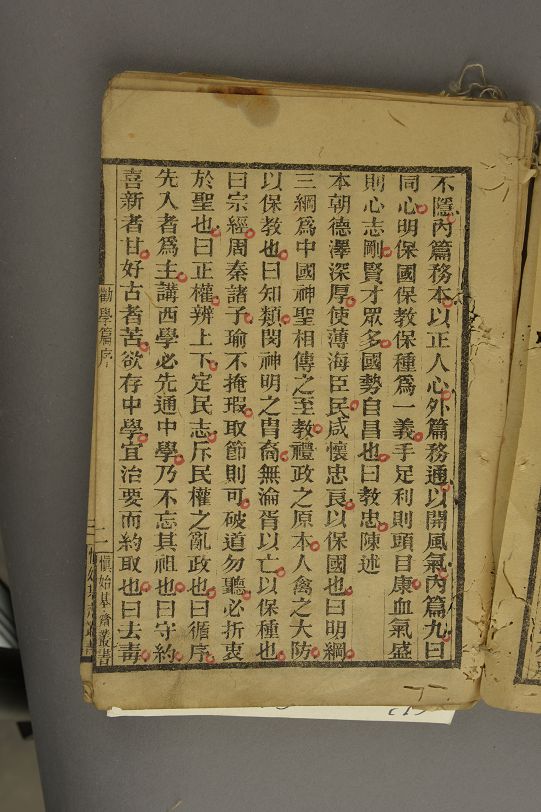 不隱內篇務本以正人心外篇務通以開風氣內篇九曰
同心明保國保教保種爲一義手足利則頭目康血氣盛
則心志剛賢才眾多國勢自昌也曰教忠陳述
本朝德澤深厚使薄海臣民咸懷忠良以保國也曰明綱
三綱爲中國神聖相傳之至教禮政之原本人禽之大防
以保教也曰知類閔神明之冑裔無淪胥以亡以保種也
曰宗經周秦諸子瑜不掩瑕取節則可破道勿聽必折衷
於聖也曰正權辨上下定民志斥民權之亂政也曰循序
先入者爲主講西學必先通中學乃不忘其祖也曰守約
喜新者甘好古者苦欲存中學宜治要而約取也曰去毒
勸學篇序
二
愼始基齋叢書